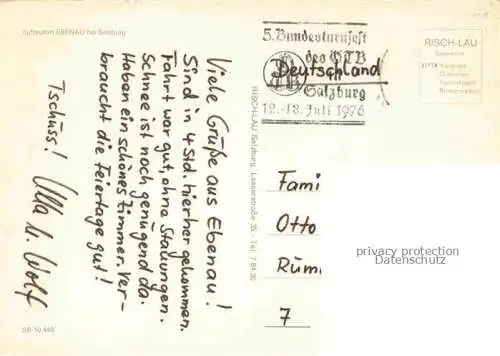 Luftkurort EBENAU bei Salzburg
Viele Grüße aus Ebenau!
Sind in 4 Std. hierher gekommen.
Fahrt war gut, ohne Stauungen.
Schnee ist noch genügend da.
Haben ein schönes Zimmer. Ver-
braucht die Feiertage gut!
Tschüss! Ulla u. Wolf
SB 10 449
RISCH-LAU Salzburg, Lasserstraße 35 - Tel. 7 64 30
5. Bundesturnfest
des ÖTB
Deutschland
Salzburg
12.-18. Juli 1976
RISCH-LAU
Fami
Otto
Rüm
7
privacy protection
Datenschutz